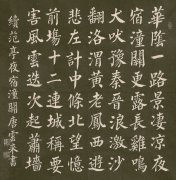 華陰一路景淒涼夜
宿潼關更露長雞鳴
犬吠豫秦晉浪激沙
翻洛渭黃老鳳西遊
悲左計中條北望慘
前塲十二連城稱要
害風雲迭次起蕭墻
續范亭夜宿潼關唐雲來書